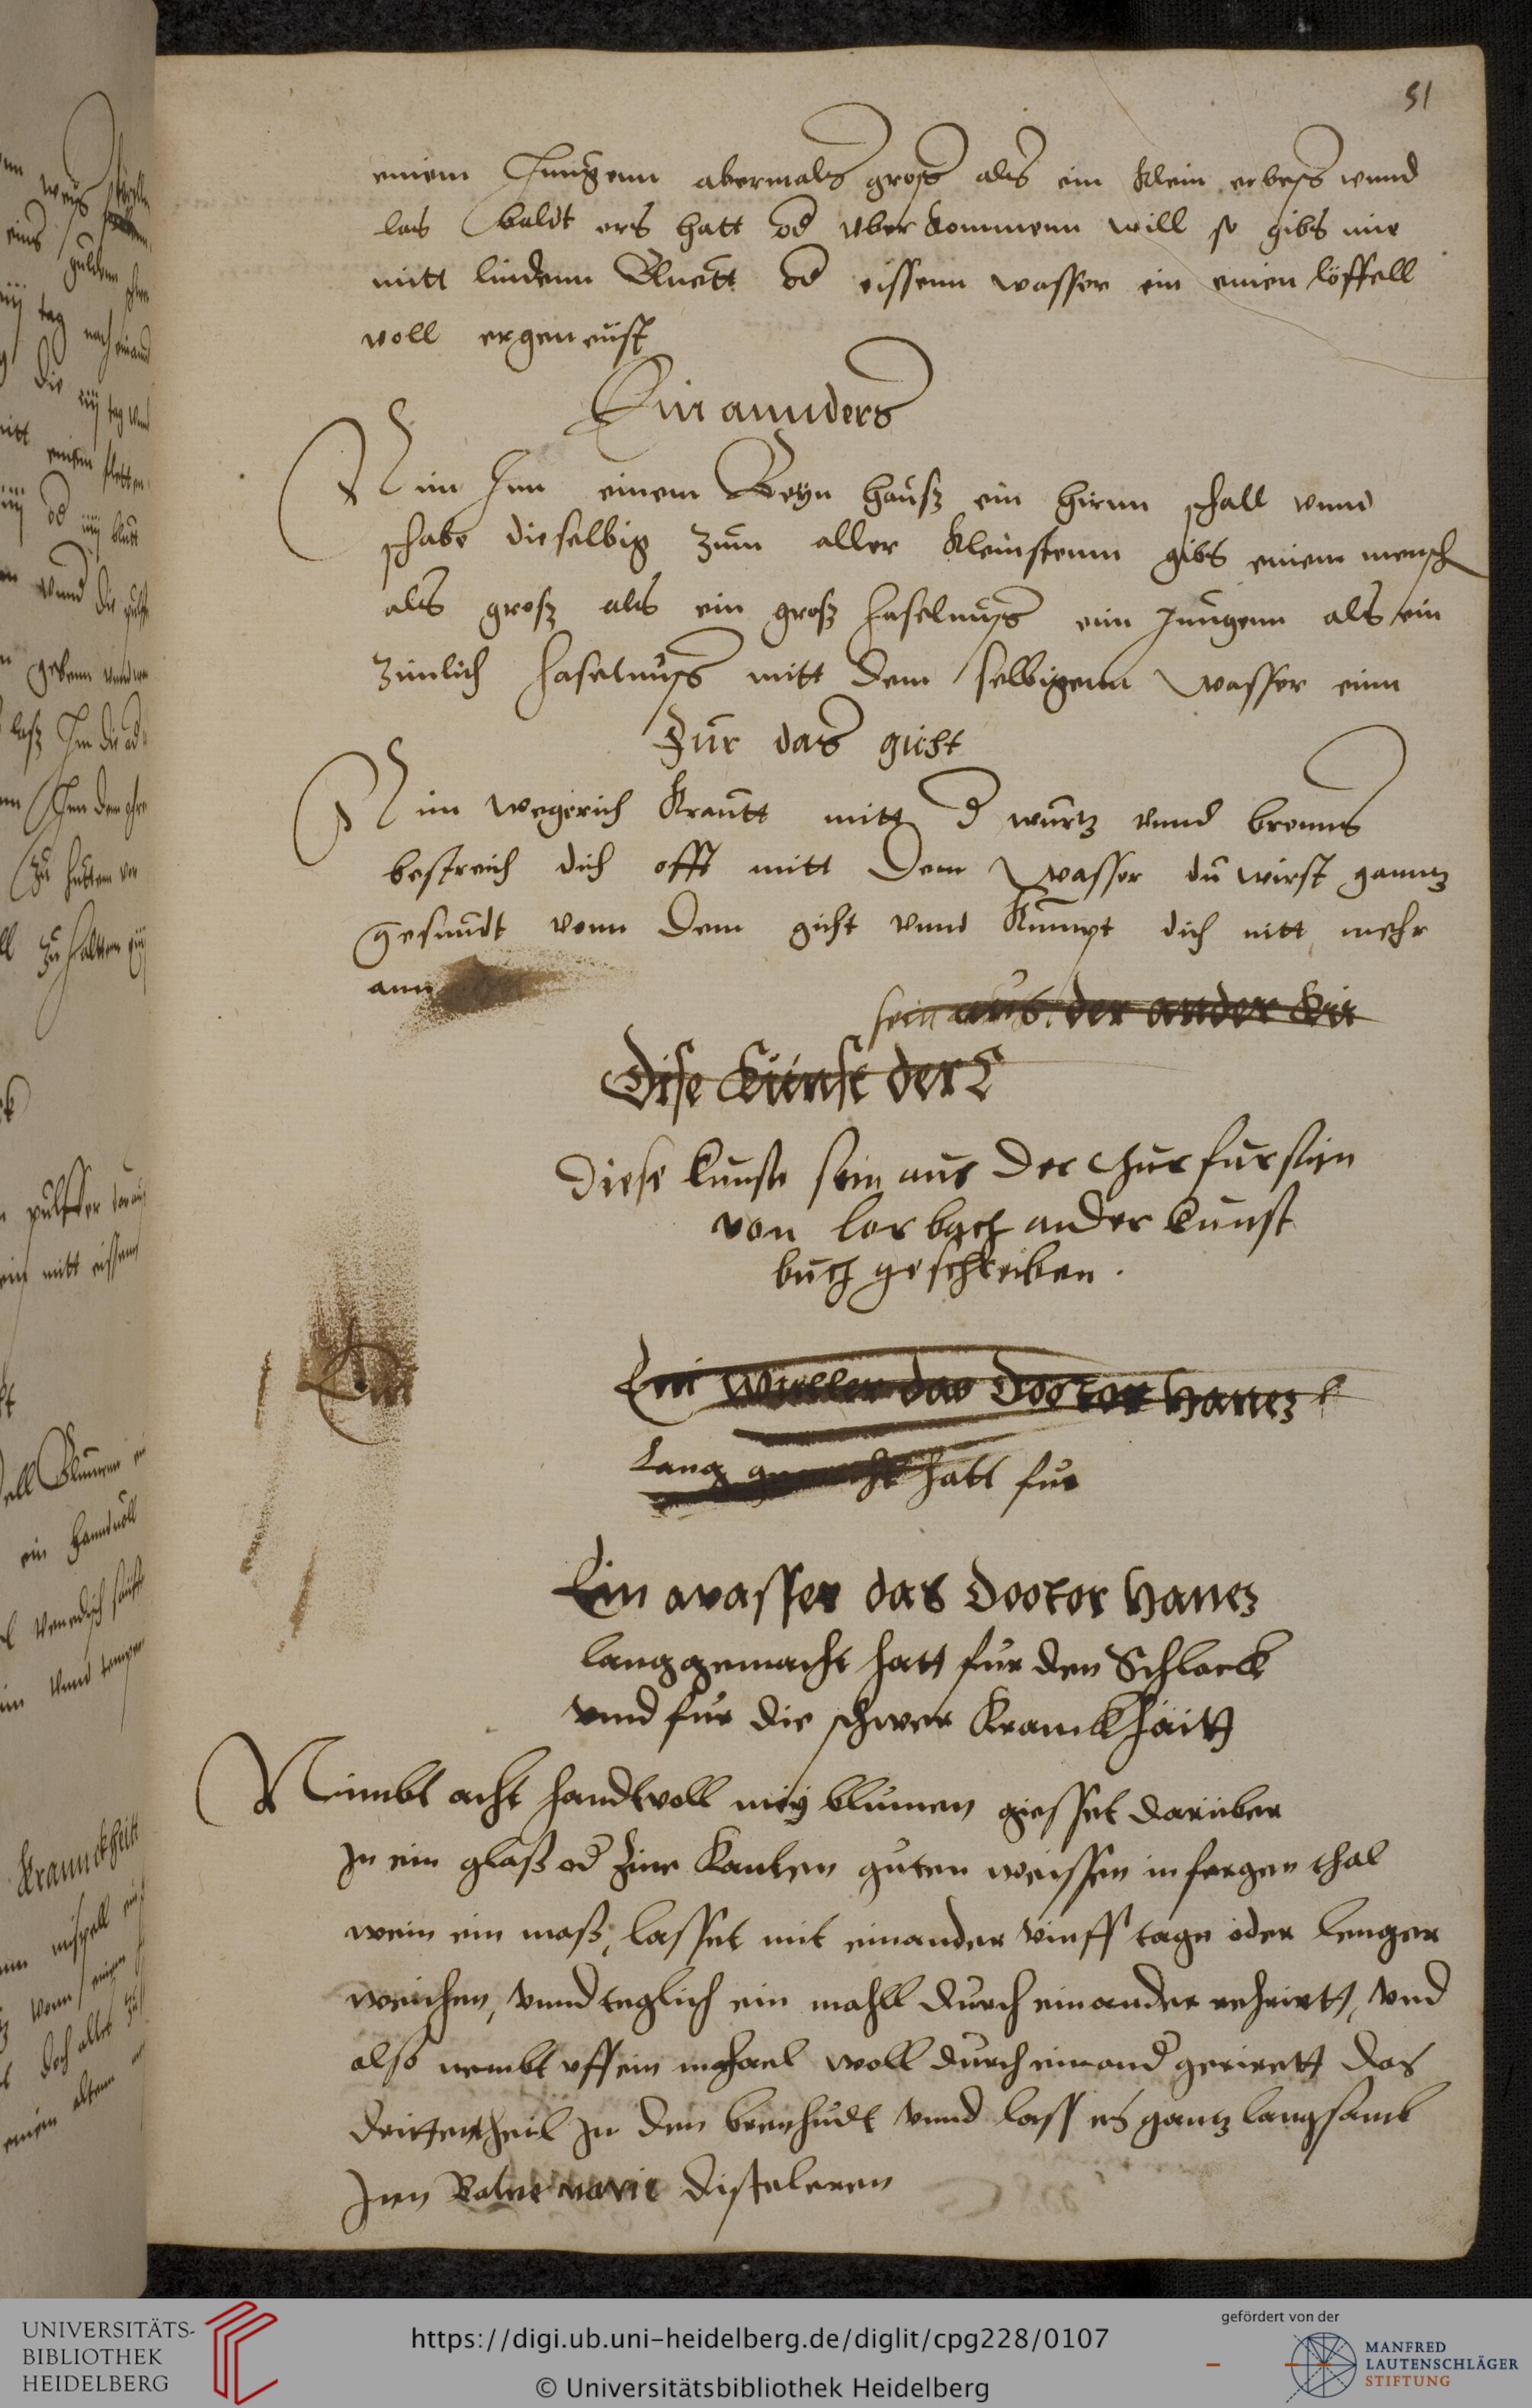 51
einem Jungenn abermals gross als ein klein erbess vnnd
las baldt ers hatt od vberkommenn will so gibs ime
mitt lindenn Bluett od eissenn wasser ein einen löffell
voll
Ein annders
Nim Jnn einem Beyn hausz ein hirnn schall vnnd
schabe dieselbig zum aller kleinstenn gibs einem mensch
als grosz als ein grosz haselnuss eim jungenn als ein
zimlich haselnuss mitt dem selbigenn wasser einn
Fur das gicht
Nim wegerich krautt mitt d wurtz vnnd brenns
bestreich dich offt mitt dem wasser du wirst ganntz
gesundt vonn dem gicht vnnd kumpt dich nitt mehr
ann
sein aus der ander
Dise kunst der
Diese kunst sein aus der churfurstin
von lorbach ander kunst
buch geschreiben.
Ein
Ein das Doctor hanes
Lang hatt fur
Ein wasser das Doctor hanes
lang gemacht hatt fur den Schlack
vnnd fur die schwer kranckhaitt
Nimbt acht handtvoll mey blumen giesset daruber
In ein glaß od zine kanten guten weissen thal
wein ein maß, lasset mit einander vinff tage oder lenger
weichen, vnnd teglich ein mahll durch einander, vnd
also nembt vff ein woll durch einand gerirett das
drittentheil In den brenhudt vnnd lass es gantz langsamb
Inn Balne marie disteleren
UNIVERSITÄTS-
BIBLIOTHEK
HEIDELBERG
https://digi.ub.uni-heidelberg.de/diglit/cpg228/0107
© Universitätsbibliothek Heidelberg
gefördert von der
MANFRED
LAUTENSCHLÄGER
STIFTUNG